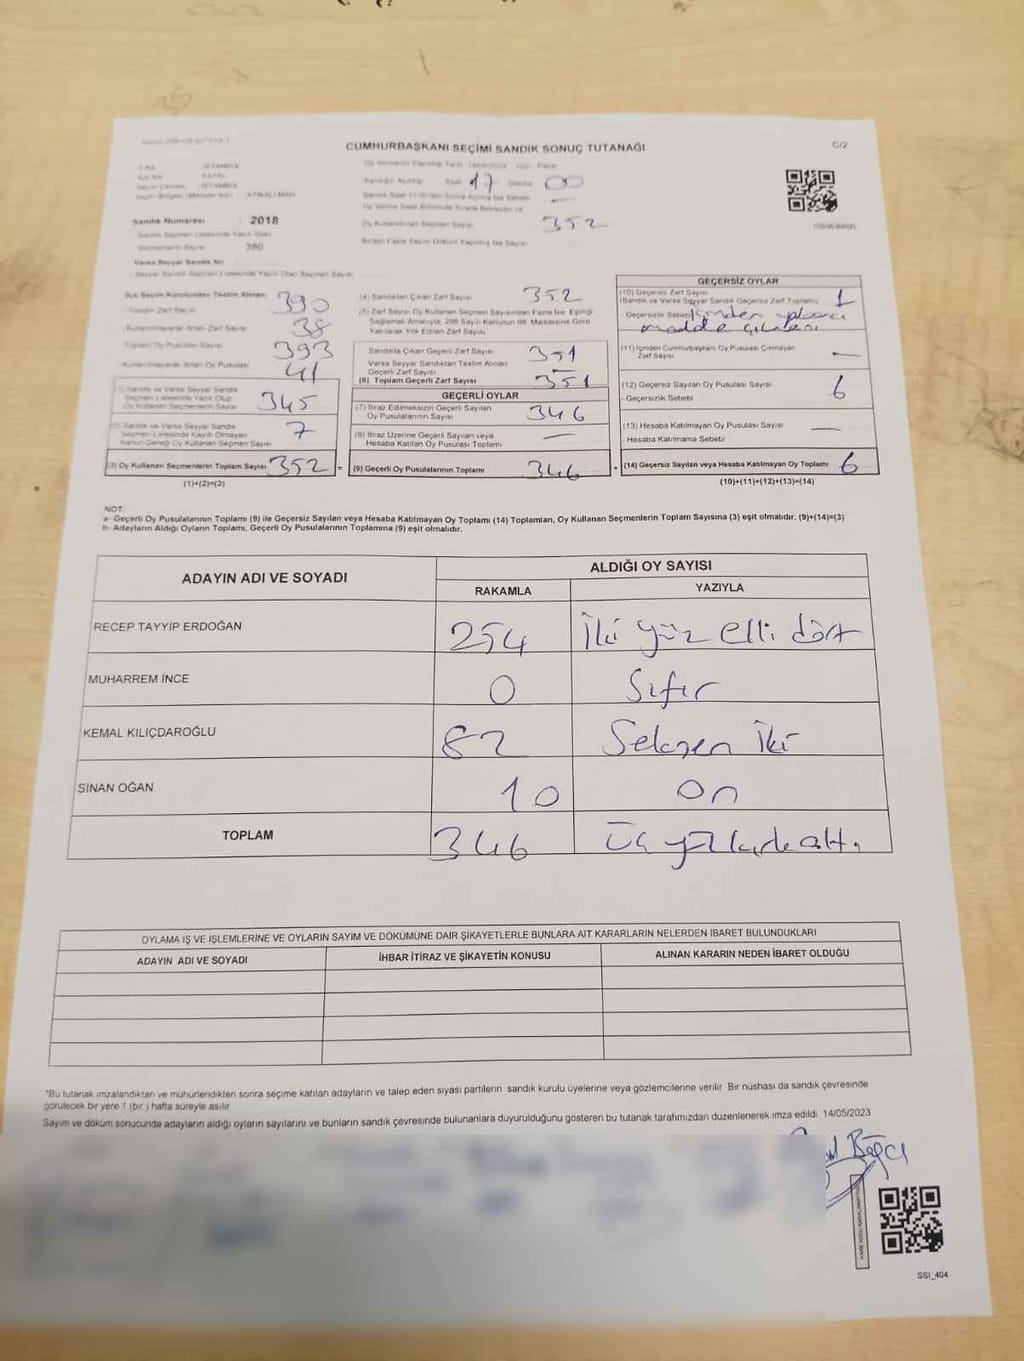 CUMHURBAŞKANI SEÇİMİ SANDIK SONUÇ TUTANAĞI
C/2
İSTANBUL
FATİH
İSTANBUL
Saat 17 00
Sandık Numarası : 2018
Oy Kullanan Seçmen Sayısı 352
380
İlçe Seçim Kurulundan Teslim Alınan
Toplam Zarf Sayısı 390
Kullanılmayarak Artan Zarf Sayısı 38
Toplam Oy Pusulası Sayısı 393
Kullanılmayarak Artan Oy Pusulası 41
(1) Sandık ve Varsa Seyyar Sandık
Seçmen Listesinde Yazılı Olup
Oy Kullanan Seçmenlerin Sayısı 345
(2) Sandık ve Varsa Seyyar Sandık
Seçmen Listesinde Kaydı Olmayan
Kanun Gereği Oy Kullanan Seçmen Sayısı 7
(3) Oy Kullanan Seçmenlerin Toplam Sayısı 352
(1)+(2)=(3)
(4) Sandıktan Çıkan Zarf Sayısı 352
(5) Zarf Sayısı Oy Kullanan Seçmen Sayısından Fazla İse, Eşitliği
Sağlamak Amacıyla, 298 Sayılı Kanunun 98. Maddesine Göre
Yakılarak Yok Edilen Zarf Sayısı
Sandıkta Çıkan Geçerli Zarf Sayısı 351
Varsa Seyyar Sandıktan Teslim Alınan
Geçerli Zarf Sayısı —
(6) Toplam Geçerli Zarf Sayısı 351
GEÇERLİ OYLAR
(7) İtiraz Edilmeksizin Geçerli Sayılan
Oy Pusulalarının Sayısı 346
(8) İtiraz Üzerine Geçerli Sayılan veya
Hesaba Katılan Oy Pusulası Toplamı —
(9) Geçerli Oy Pusulalarının Toplamı 346
GEÇERSİZ OYLAR
(10) Geçersiz Zarf Sayısı
(Sandık ve Varsa Seyyar Sandık Geçersiz Zarf Toplamı) 1
- Geçersizlik Sebebi İçinden yabancı
madde çıkması
(11) İçinden Cumhurbaşkanı Oy Pusulası Çıkmayan
Zarf Sayısı —
(12) Geçersiz Sayılan Oy Pusulası Sayısı 6
- Geçersizlik Sebebi
(13) Hesaba Katılmayan Oy Pusulası Sayısı —
- Hesaba Katılmama Sebebi
(14) Geçersiz Sayılan veya Hesaba Katılmayan Oy Toplamı 6
(10)+(11)+(12)+(13)=(14)
NOT:
a- Geçerli Oy Pusulalarının Toplamı (9) ile Geçersiz Sayılan veya Hesaba Katılmayan Oy Toplamı (14) Toplamları, Oy Kullanan Seçmenlerin Toplam Sayısına (3) eşit olmalıdır. (9)+(14)=(3)
b- Adayların Aldığı Oyların Toplamı, Geçerli Oy Pusulalarının Toplamına (9) eşit olmalıdır.
ADAYIN ADI VE SOYADI
ALDIĞI OY SAYISI
RAKAMLA YAZIYLA
RECEP TAYYİP ERDOĞAN 254 İki yüz elli dört
MUHARREM İNCE 0 Sıfır
KEMAL KILIÇDAROĞLU 82 Seksen İki
SİNAN OĞAN 10 On
TOPLAM 346 Üç yüz kırk altı
OYLAMA İŞ VE İŞLEMLERİNE VE OYLARIN SAYIM VE DÖKÜMÜNE DAİR ŞİKAYETLERLE BUNLARA AİT KARARLARIN NELERDEN İBARET BULUNDUKLARI
ADAYIN ADI VE SOYADI İHBAR İTİRAZ VE ŞİKAYETİN KONUSU ALINAN KARARIN NEDEN İBARET OLDUĞU
"Bu tutanak imzalandıktan ve mühürlendikten sonra seçime katılan adayların ve talep eden siyasi partilerin sandık kurulu üyelerine veya gözlemcilerine verilir. Bir nüshası da sandık çevresinde
görülecek bir yere 1 (bir ) hafta süreyle asılır.
Sayım ve döküm sonucunda adayların aldığı oyların sayılarını ve bunların sandık çevresinde bulunanlara duyurulduğunu gösteren bu tutanak tarafımızdan düzenlenerek imza edildi. 14/05/2023
Bağcı
SSI_404